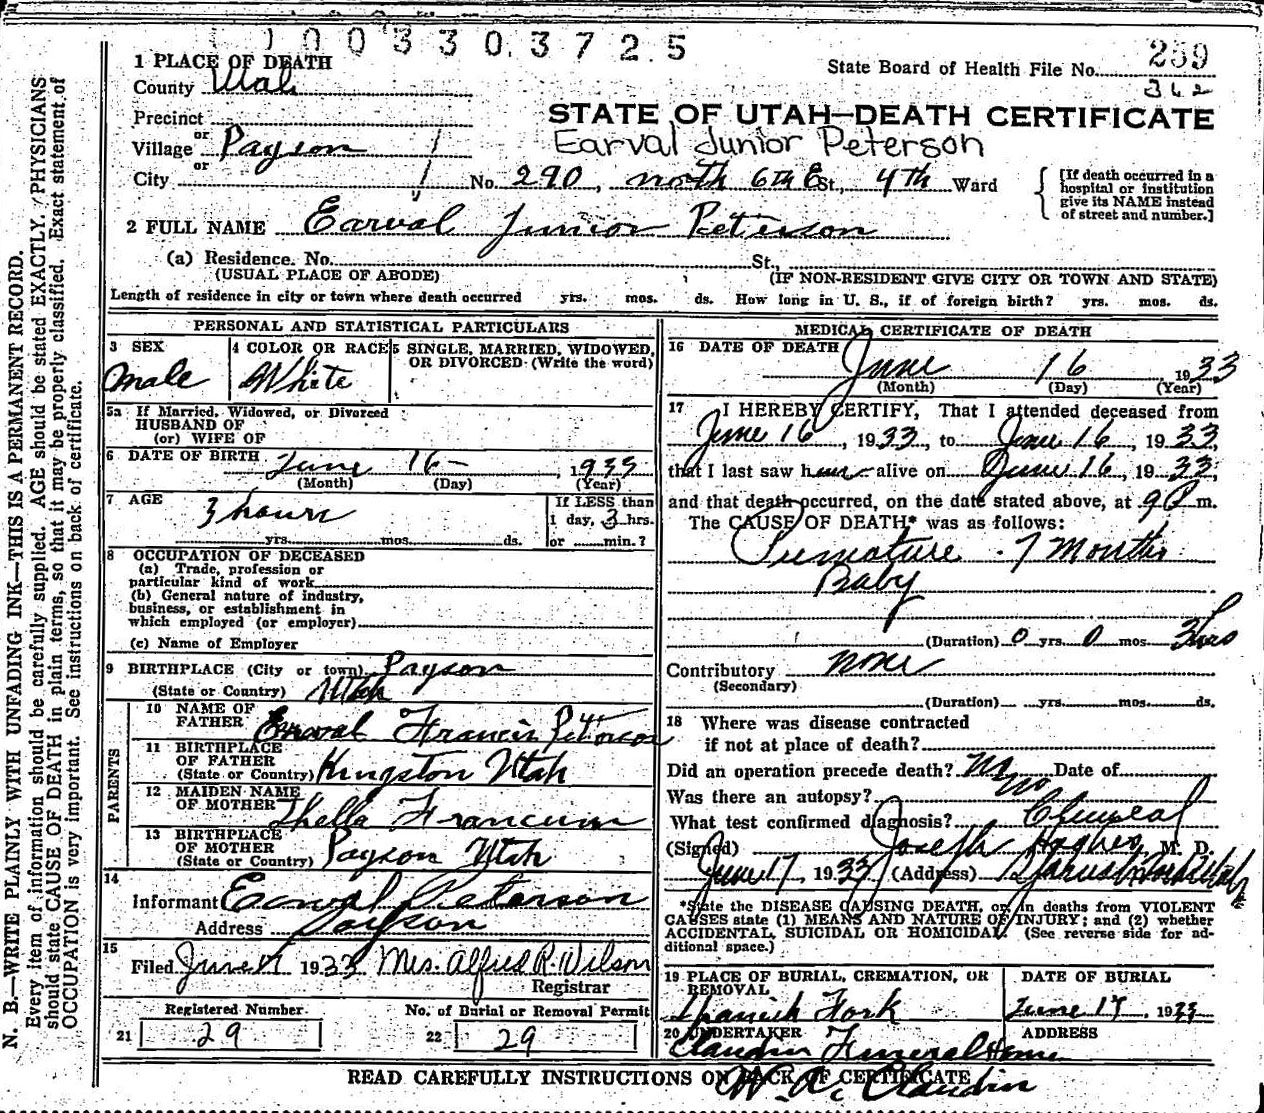 1 0 0 3 3 0 3 7 2 5
1 PLACE OF DEATH
County Utah
State Board of Health File No. 259
362
STATE OF UTAH—DEATH CERTIFICATE
Earval Junior Peterson
Precinct
or
Village Payson
or
City No. 290, north 6th E St., 4th Ward
[If death occurred in a hospital or institution give its NAME instead of street and number.]
2 FULL NAME Earval Junior Peterson
(a) Residence. No. St.,
(USUAL PLACE OF ABODE) (IF NON-RESIDENT GIVE CITY OR TOWN AND STATE)
Length of residence in city or town where death occurred yrs. mos. ds. How long in U. S., if of foreign birth? yrs. mos. ds.
PERSONAL AND STATISTICAL PARTICULARS
3 SEX
Male
4 COLOR OR RACE
White
5 SINGLE, MARRIED, WIDOWED, OR DIVORCED (Write the word)
5a If Married, Widowed, or Divorced
HUSBAND OF
(or) WIFE OF
6 DATE OF BIRTH June 16 — , 1933
(Month) (Day) (Year)
7 AGE 3 hours
yrs. mos. ds.
If LESS than
1 day, 3 hrs.
or min.?
8 OCCUPATION OF DECEASED
(a) Trade, profession or
particular kind of work
(b) General nature of industry,
business, or establishment in
which employed (or employer)
(c) Name of Employer
9 BIRTHPLACE (City or town) Payson
(State or Country) Utah
PARENTS
10 NAME OF
FATHER Earval Francis Peterson
11 BIRTHPLACE
OF FATHER
(State or Country) Kingston Utah
12 MAIDEN NAME
OF MOTHER Thella Francum
13 BIRTHPLACE
OF MOTHER
(State or Country) Payson Utah
14
Informant Earval Peterson
Address Payson
15
Filed June 17 1933 Mrs. Alfred R. Wilson
Registrar
Registered Number. No. of Burial or Removal Permit
21 29 22 29
MEDICAL CERTIFICATE OF DEATH
16 DATE OF DEATH
June 16 1933
(Month) (Day) (Year)
17 I HEREBY CERTIFY, That I attended deceased from
June 16, 1933, to June 16, 1933,
that I last saw him alive on June 16, 1933,
and that death occurred, on the date stated above, at 9 P m.
The CAUSE OF DEATH* was as follows:
Premature 7 Months
Baby
(Duration) 0 yrs. 0 mos. 3 hrs
Contributory none
(Secondary)
(Duration) yrs. mos. ds.
18 Where was disease contracted
if not at place of death?
Did an operation precede death? No Date of
Was there an autopsy? no
What test confirmed diagnosis?
(Signed) Joseph Hughes, M. D.
June 17, 1933 (Address)
*State the DISEASE CAUSING DEATH, or, in deaths from VIOLENT
CAUSES state (1) MEANS AND NATURE OF INJURY; and (2) whether
ACCIDENTAL, SUICIDAL OR HOMICIDAL. (See reverse side for ad-
ditional space.)
19 PLACE OF BURIAL, CREMATION, OR
REMOVAL
Spanish Fork
DATE OF BURIAL
June 17, 1933
20 UNDERTAKER ADDRESS
Claudin Funeral Home
W. A. Claudin
READ CAREFULLY INSTRUCTIONS ON BACK OF CERTIFICATE
N. B.—WRITE PLAINLY WITH UNFADING INK—THIS IS A PERMANENT RECORD.
Every item of information should be carefully supplied. AGE should be stated EXACTLY. PHYSICIANS
should state CAUSE OF DEATH in plain terms, so that it may be properly classified. Exact statement of
OCCUPATION is very important. See instructions on back of certificate.